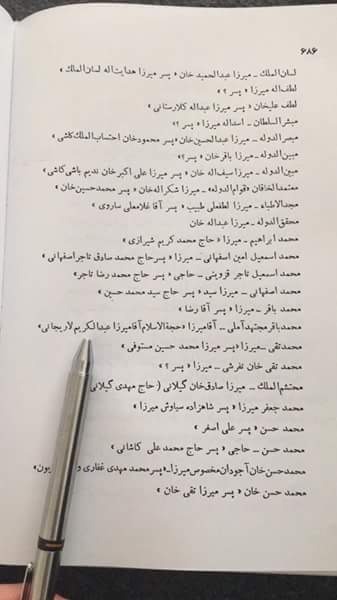 ۶۸۶
لسان‌الملك ـ میرزا عبدالحمید خان « پسر میرزا هدایت‌اله لسان‌الملك »
لطف‌اله میرزا « پسر ؟ »
لطف علیخان « پسر میرزا عبداله کلارستانی »
مبشرالسلطان ـ اسداله میرزا « پسر ؟»
مبصرالدوله ـ میرزا عبدالحسین‌خان «پسر محمودخان احتساب‌الملك‌کاشی »
مبین‌الدوله ـ میرزا باقرخان « پسر؟»
مبین‌الدوله ـ میرزا سیف‌اله خان « پسر میرزا علی اکبرخان ندیم باشی‌کاشی »
معتمدالخاقان «قوام‌الدوله» ـ میرزا شکراله‌خان « پسر محمدحسین‌خان »
مجدالاطباء ـ میرزا لطفعلی طبیب « پسر آقا غلامعلی ساروی »
محقق‌الدوله ـ میرزا عبداله خان
محمد ابراهیم ـ میرزا « حاج محمد کریم شیرازی »
محمد اسمعیل امین اصفهانی ـ میرزا « پسرحاج محمد صادق تاجراصفهانی »
محمد اسمعیل تاجر قزوینی ـ حاجی « پسر حاج محمد رضا تاجر»
محمد اصفهانی ـ میرزا سید« پسر حاج سید محمد حسین »
محمد باقر ـ میرزا « پسر آقا رضا »
محمدباقرمجتهدآملی ـ آقامیرزا «حجةالاسلام‌آقامیرزا عبدالکریم‌لاریجانی»
محمدتقی ـ میرزا «پسر میرزا محمد حسین مستوفی »
محمد تقی خان تفرشی ـ میرزا « پسر ؟ »
محتشم‌الملك ـ میرزا صادق‌خان گیلانی ( حاج مهدی گیلانی
محمد جعفر میرزا « پسر شاهزاده سیاوش میرزا »
محمد حسن « پسر علی اصغر »
محمد حسن ـ حاجی « پسر حاج محمد علی کاشانی »
محمدحسن‌خان‌آجودان‌مخصوص‌میرزا ـ «پسر محمد مهدی غفاری
محمد حسن خان « پسر میرزا تقی خان »